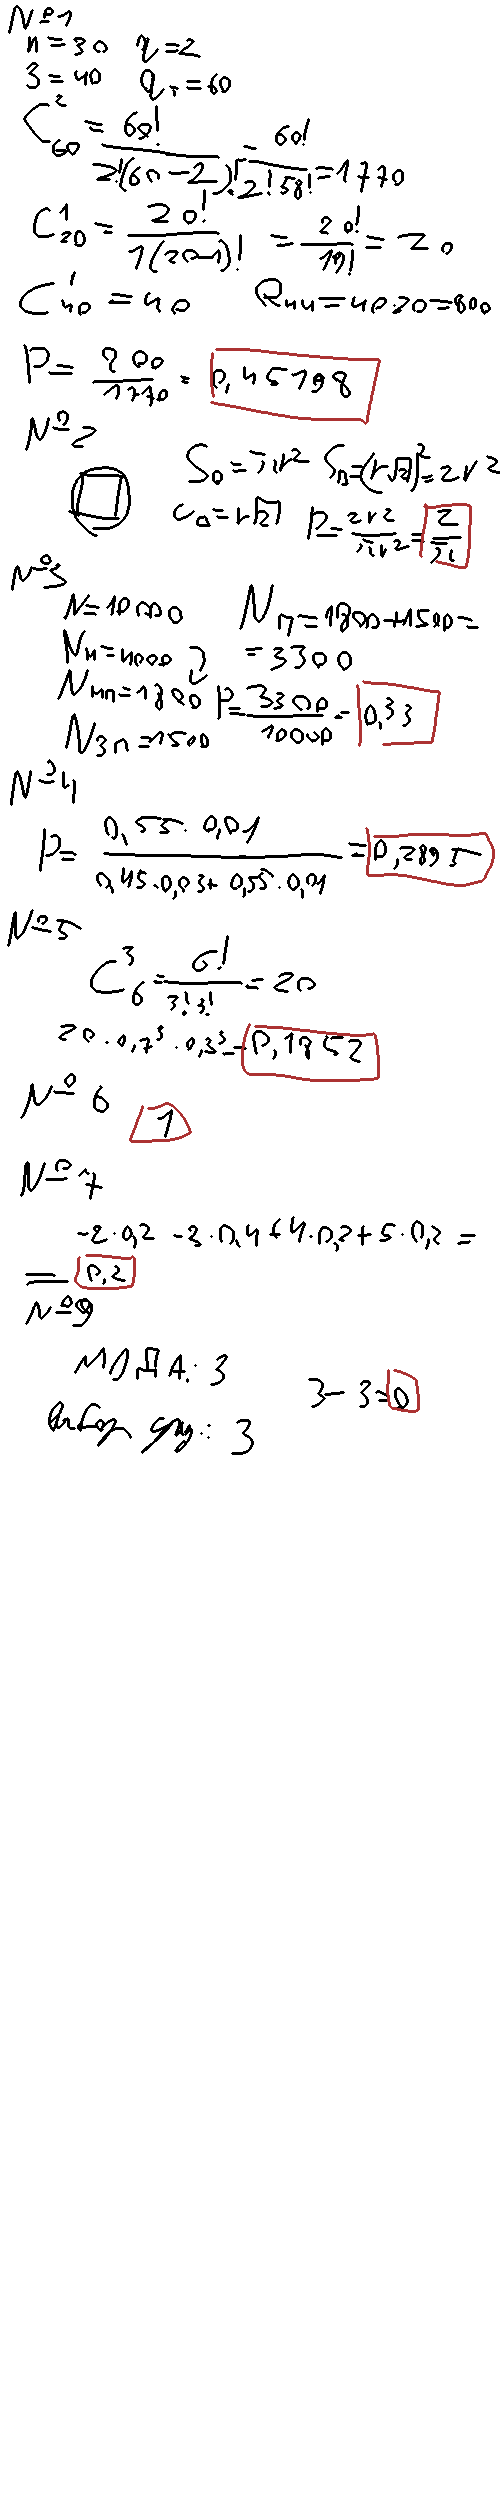 №1
n=30 q=2
3=40 qт=60
C²₆₀ = 60! / 2!(60-2)! = 60! / 2!58! = 1770
C¹₂₀ = 20! / 1(20-1)! = 20! / 19! = 20
C¹₄₀ = 40 = 40·20=800
P= 800/1770 = 0,45198
№2
S₀=πr² S□=(r√2)²=2r²
a□=r√2 P=2r²/πr²=2/π
№3
N=10000 Nп=1800+1500=
Nн=4000 =3300
Nнп=1800 P=3300/10000=0,33
Nзп=1500
№4
P= 0,55·0,01 / 0,45·0,03+0,55·0,01 = 0,2895
№5
C³₆ = 6!/3!3! = 20
20·0,7³·0,3³=0,1852
№6
1
№7
-2·0,2 -3·0,4+4·0,2+5·0,2=
= 0,2
№9
МОДА: 3
3-3=0
выбор сред.: 3